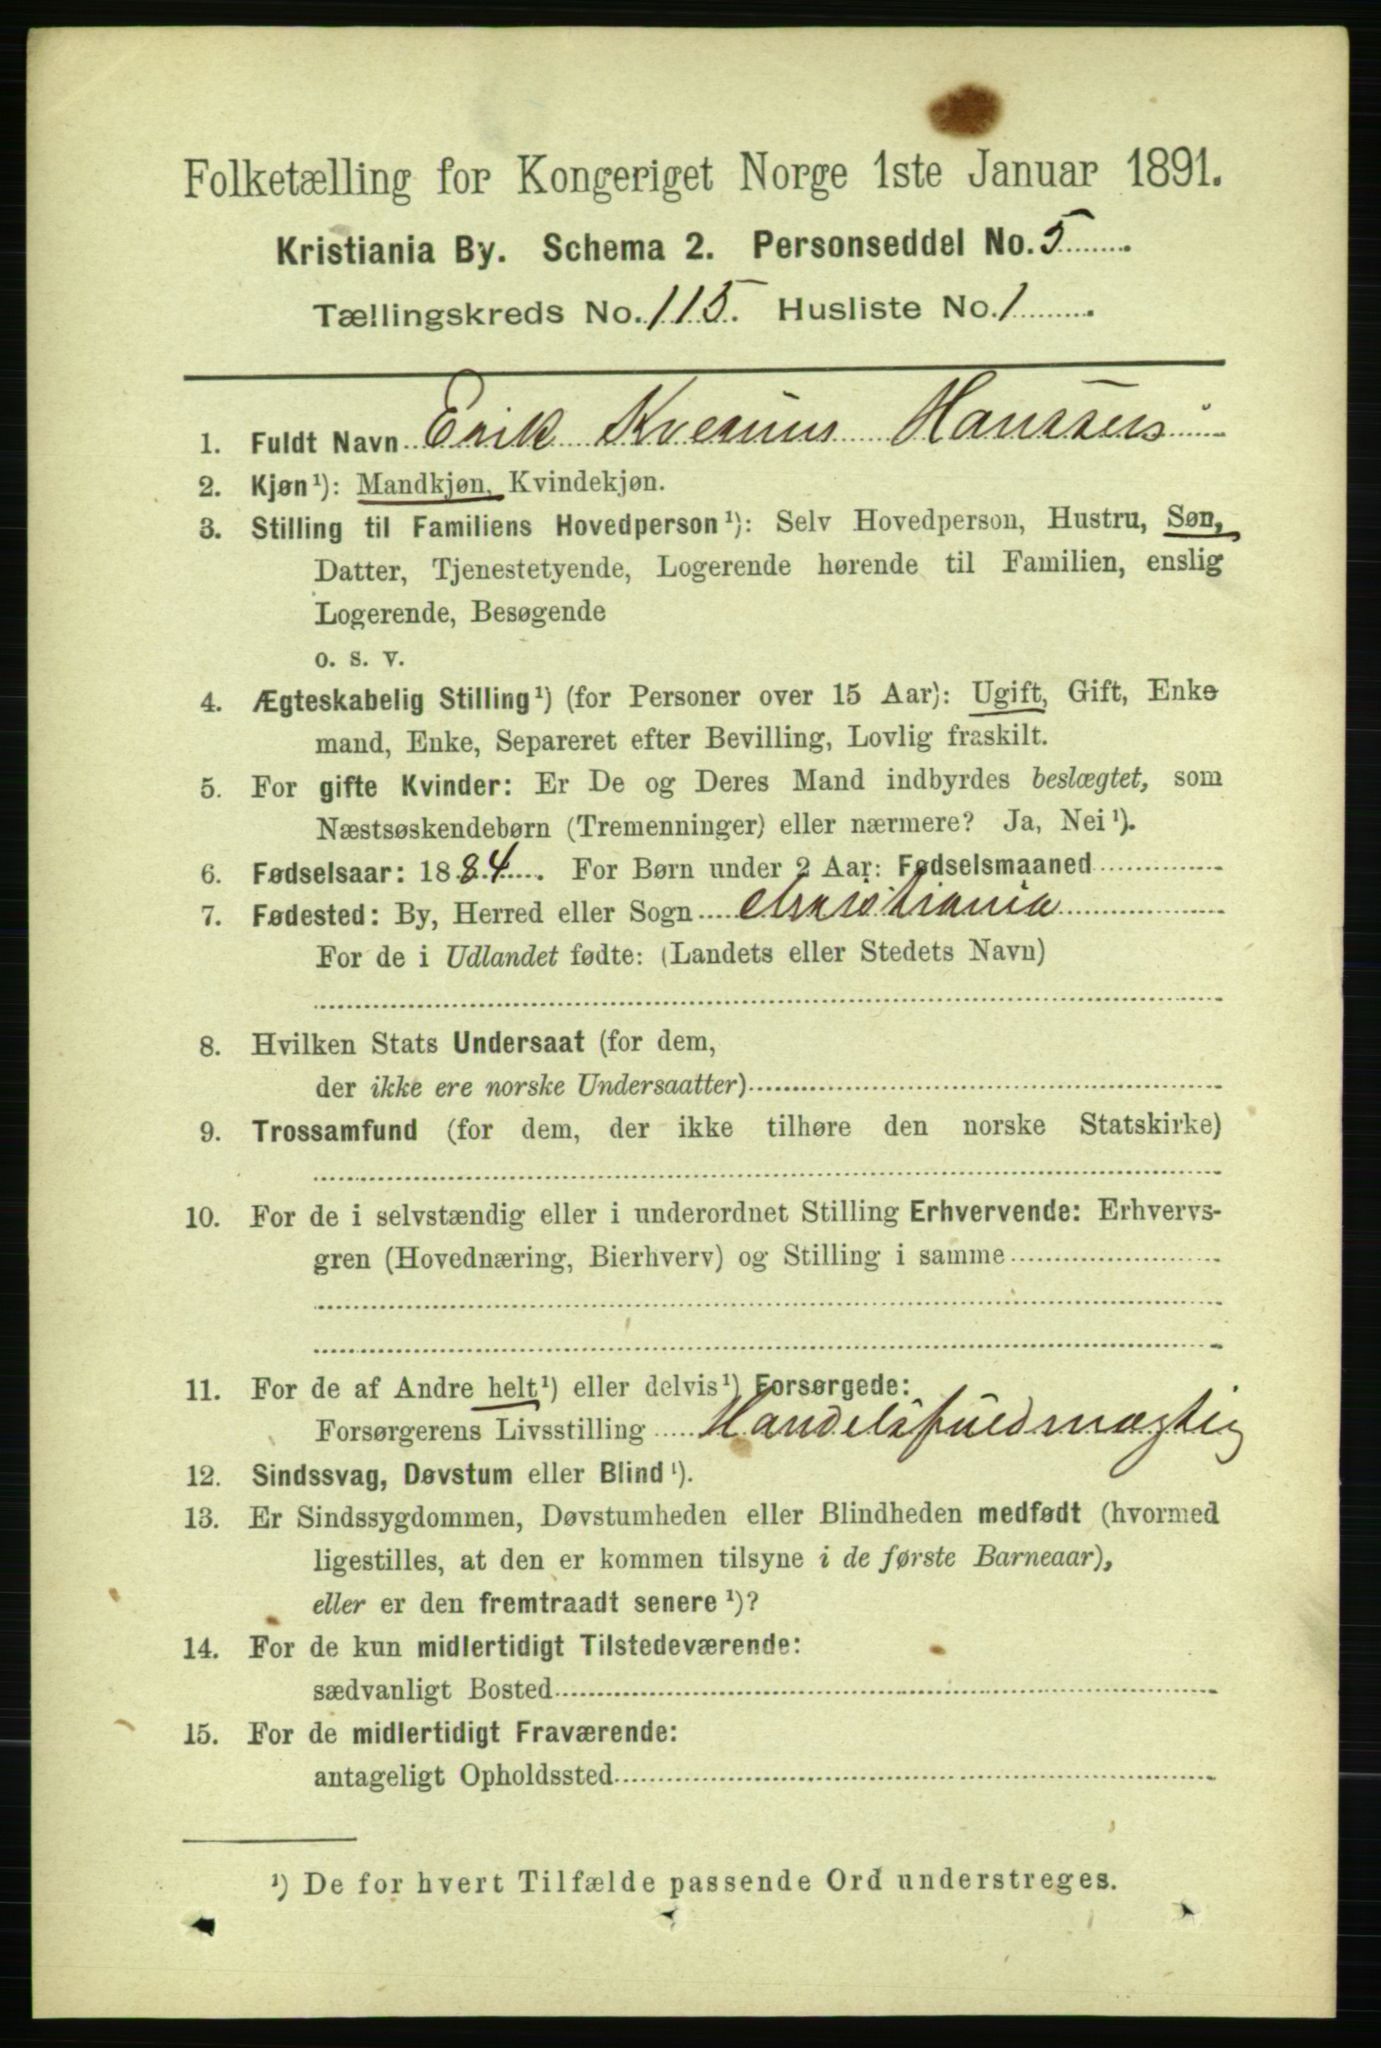 Folketælling for Kongeriget Norge 1ste Januar 1891.
Kristiania By. Schema 2. Personseddel No. 5
Tællingskreds No. 115. Husliste No. 1
1. Fuldt Navn Erik Hanssen
2. Kjøn¹): Mandkjøn, Kvindekjøn.
3. Stilling til Familiens Hovedperson¹): Selv Hovedperson, Hustru, Søn,
Datter, Tjenestetyende, Logerende hørende til Familien, enslig
Logerende, Besøgende
o. s. v.
4. Ægteskabelig Stilling¹) (for Personer over 15 Aar): Ugift, Gift, Enke
mand, Enke, Separeret efter Bevilling, Lovlig fraskilt.
5. For gifte Kvinder: Er De og Deres Mand indbyrdes beslægtet, som
Næstsøskendebørn (Tremenninger) eller nærmere? Ja, Nei¹).
6. Fødselsaar: 1884. For Børn under 2 Aar: Fødselsmaaned
7. Fødested: By, Herred eller Sogn Christiania
For de i Udlandet fødte: (Landets eller Stedets Navn)
8. Hvilken Stats Undersaat (for dem,
der ikke ere norske Undersaatter)
9. Trossamfund (for dem, der ikke tilhøre den norske Statskirke)
10. For de i selvstændig eller i underordnet Stilling Erhvervende: Erhvervs-
gren (Hovednæring, Bierhverv) og Stilling i samme
11. For de af Andre helt¹) eller delvis¹) Forsørgede:
Forsørgerens Livsstilling Handelsfuldmægtig
12. Sindssvag, Døvstum eller Blind¹).
13. Er Sindssygdommen, Døvstumheden eller Blindheden medfødt (hvormed
ligestilles, at den er kommen tilsyne i de første Barneaar),
eller er den fremtraadt senere¹)?
14. For de kun midlertidigt Tilstedeværende:
sædvanligt Bosted
15. For de midlertidigt Fraværende:
antageligt Opholdssted
¹) De for hvert Tilfælde passende Ord understreges.